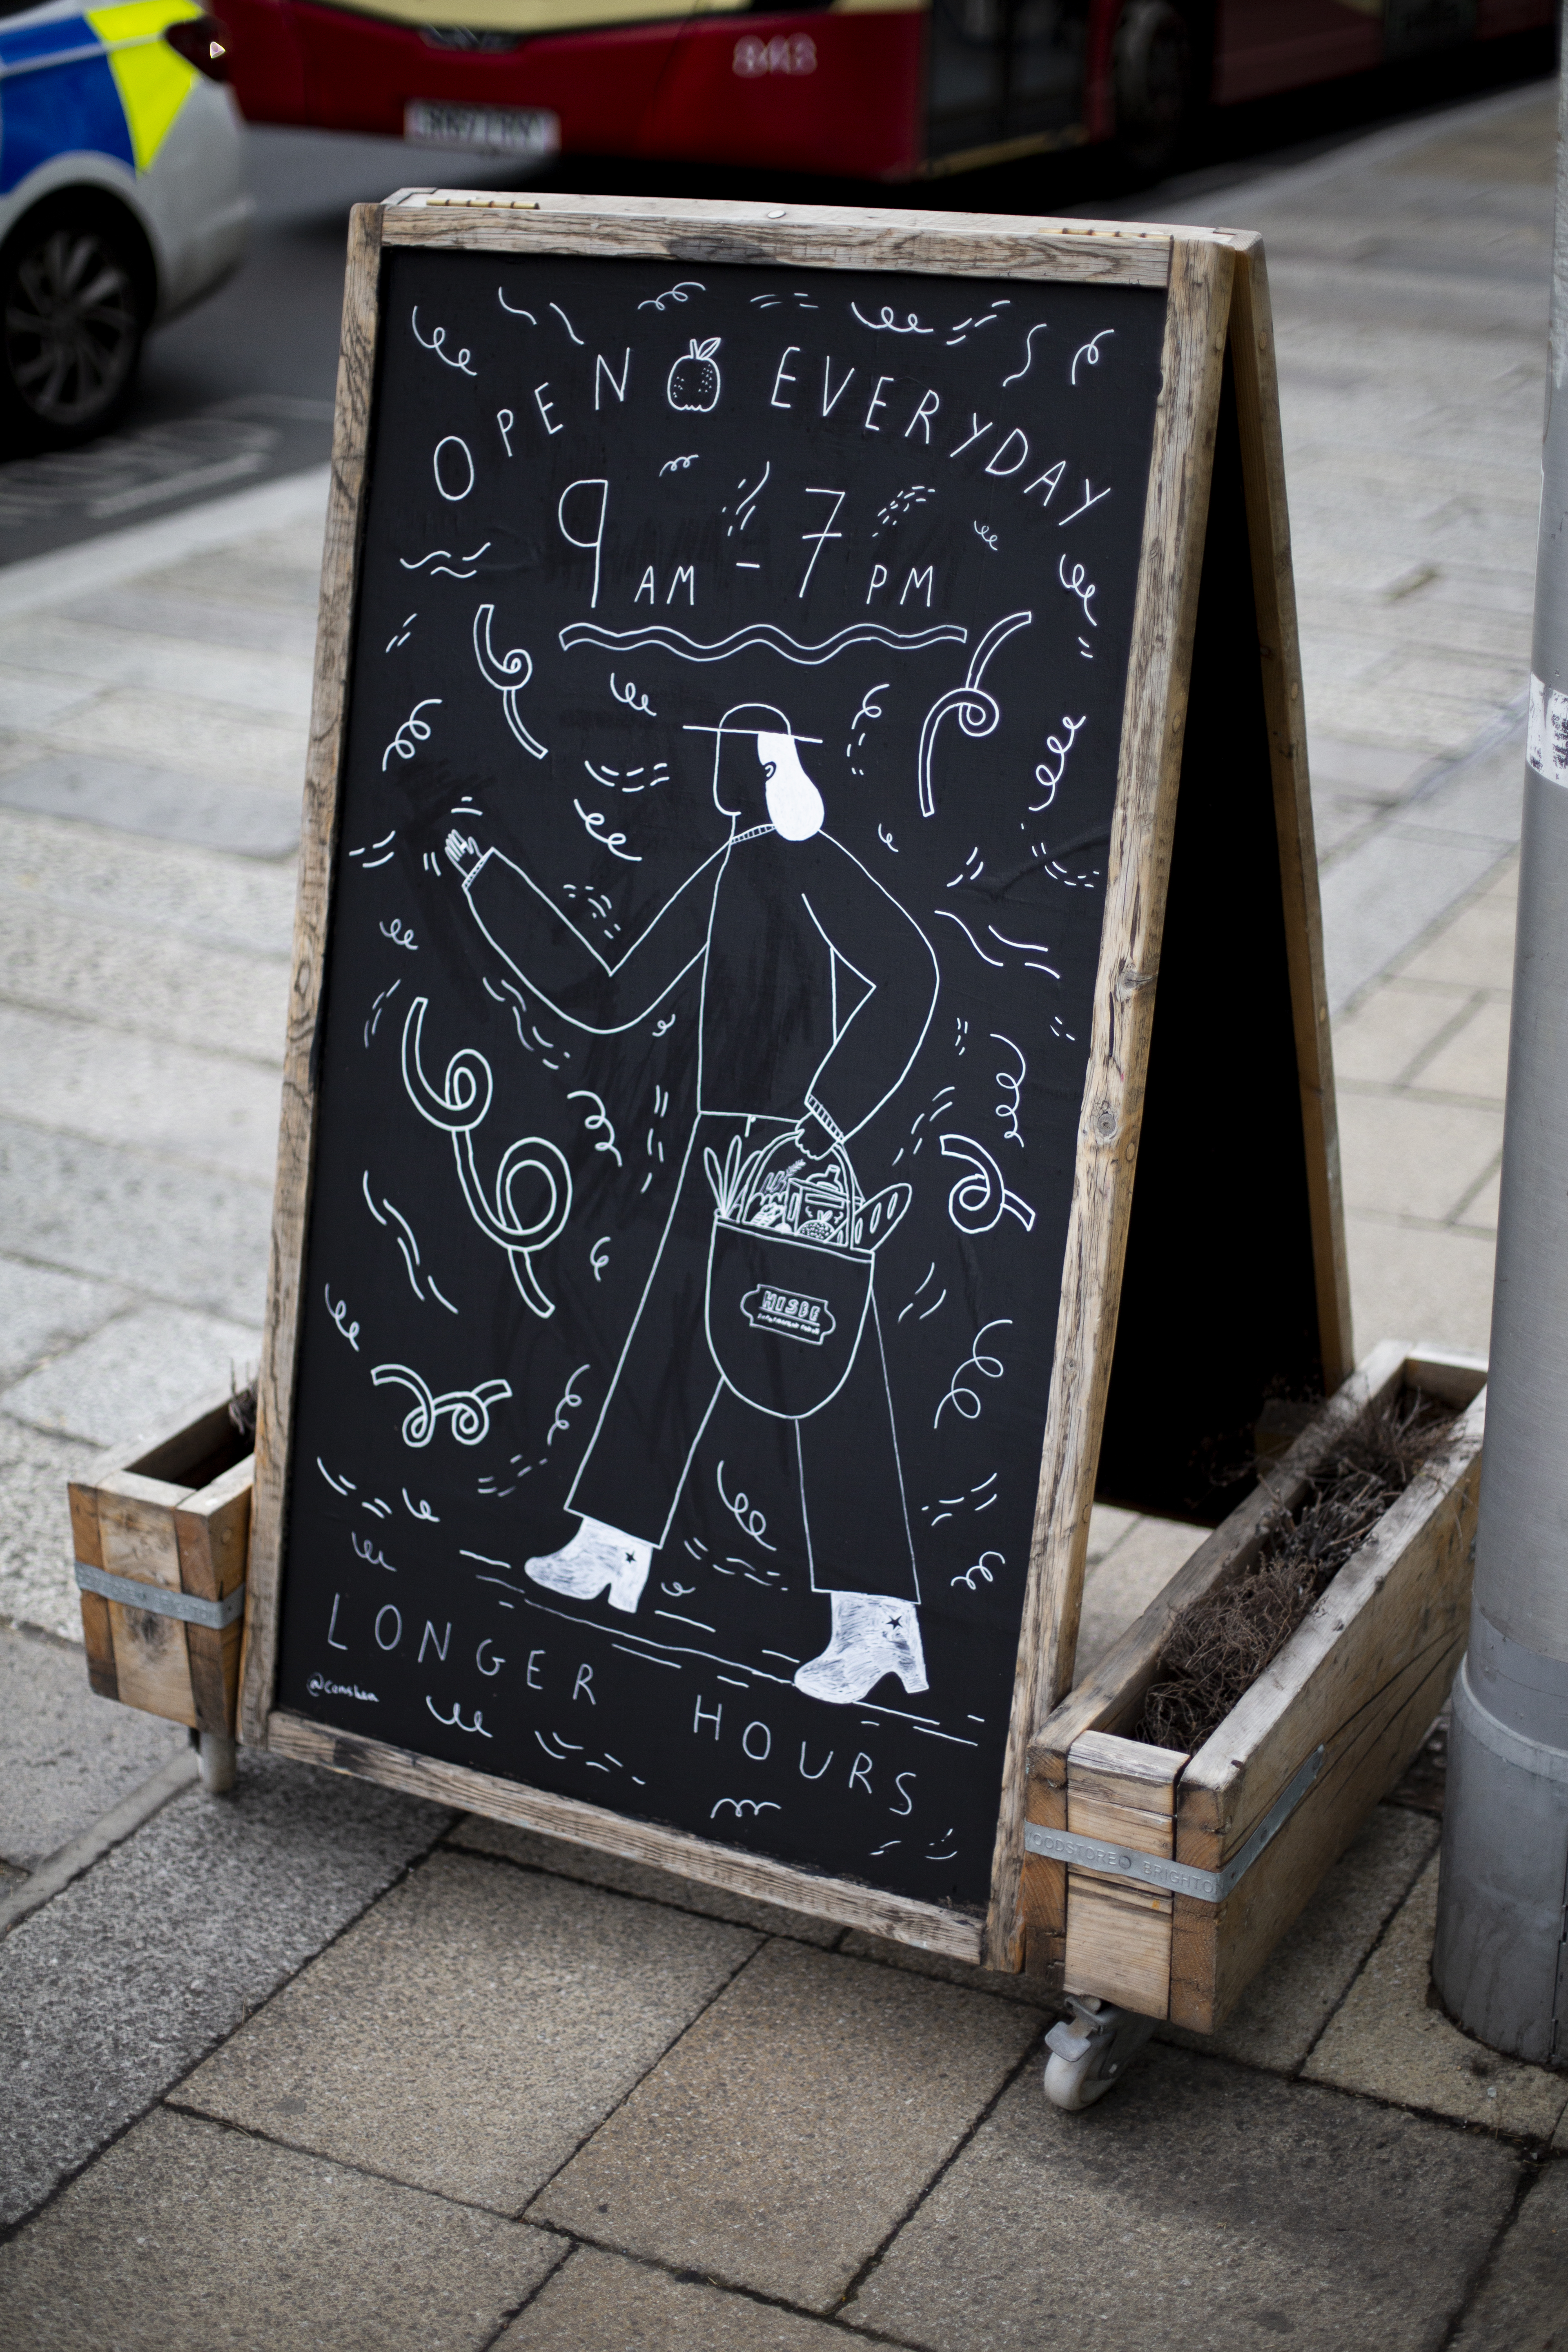 843
OPEN EVERYDAY
9 AM - 7 PM
HISBE
LONGER HOURS
OODSTORE BRIGHTO